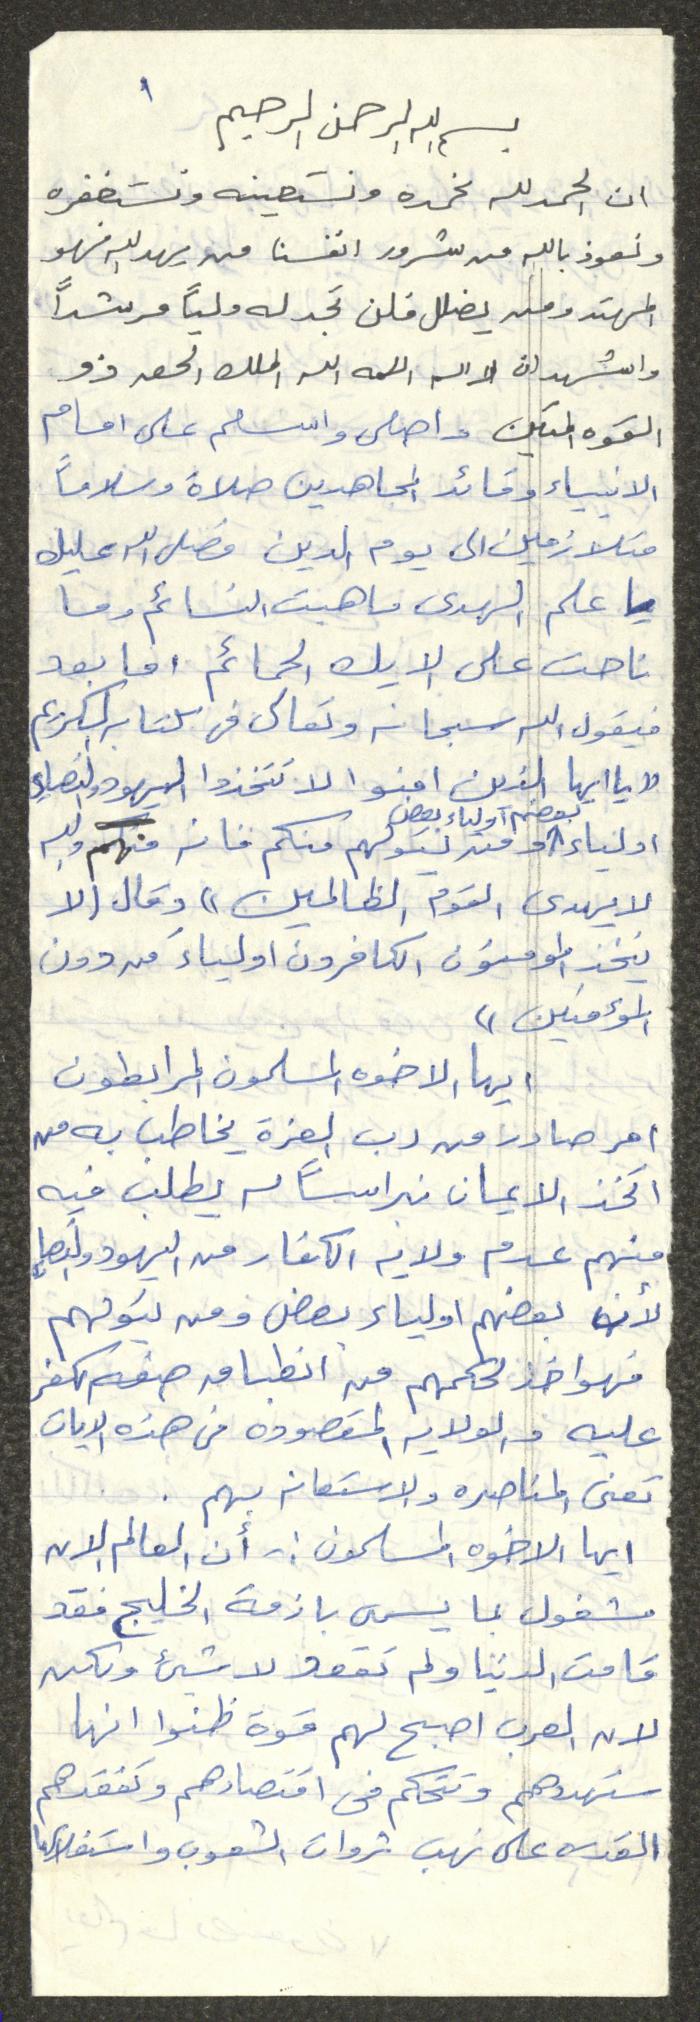 ١
بسم الله الرحمن الرحيم
ان الحمد لله نحمده ونستعينه ونستغفره
ونعوذ بالله من شرور انفسنا من يهد الله فهو
المهتد ومن يضلل فلن تجد له ولياً مرشداً
واشهد ان لا اله الا الله الملك الحق ذو
القوه المتين واصلى واسلم على امام
الانبياء وقائد المجاهدين صلاة وسلاماً
متلازمين الى يوم الدين فصلى الله عليك
يا علم الهدى ما هبت النسائم وما
ناحت على الايك الحمائم اما بعد
فيقول الله سبحانه وتعالى فى كتابه الكريم
« يا ايها الذين امنوا لا تتخذوا اليهود والنصارى
اولياء بعضهم اولياء بعض ومن يتولهم منكم فانه منهم والله
لا يهدى القوم الظالمين » وقال (لا
يتخذ المؤمنون الكافرون اولياء من دون
المؤمنين »
ايها الاخوه المسلمون المرابطون
امر صادر من رب العزة يخاطب به من
اتخذ الايمان نبراساً له يطلب فيه
منهم عدم ولايه الكفار من اليهود والنصارى
لأن بعضهم اولياء بعض ومن يتولهم
فهو اخذ لحكمهم من انطباق صفه الكفر
عليه والولايه المقصوده فى هذه الايات
تعنى المناصره والاستعانه بهم .
ايها الاخوه المسلمون :- أن العالم الان
مشغول بما يسمى بازمة الخليج فقد
قامت الدنيا ولم تقعد لا شيئ ولكن
لان العرب اصبح لهم قوة ظنوا انها
ستهددهم وتتحكم فى اقتصادهم وتفقدهم
القدره على نهب ثروات الشعوب واستغلالها